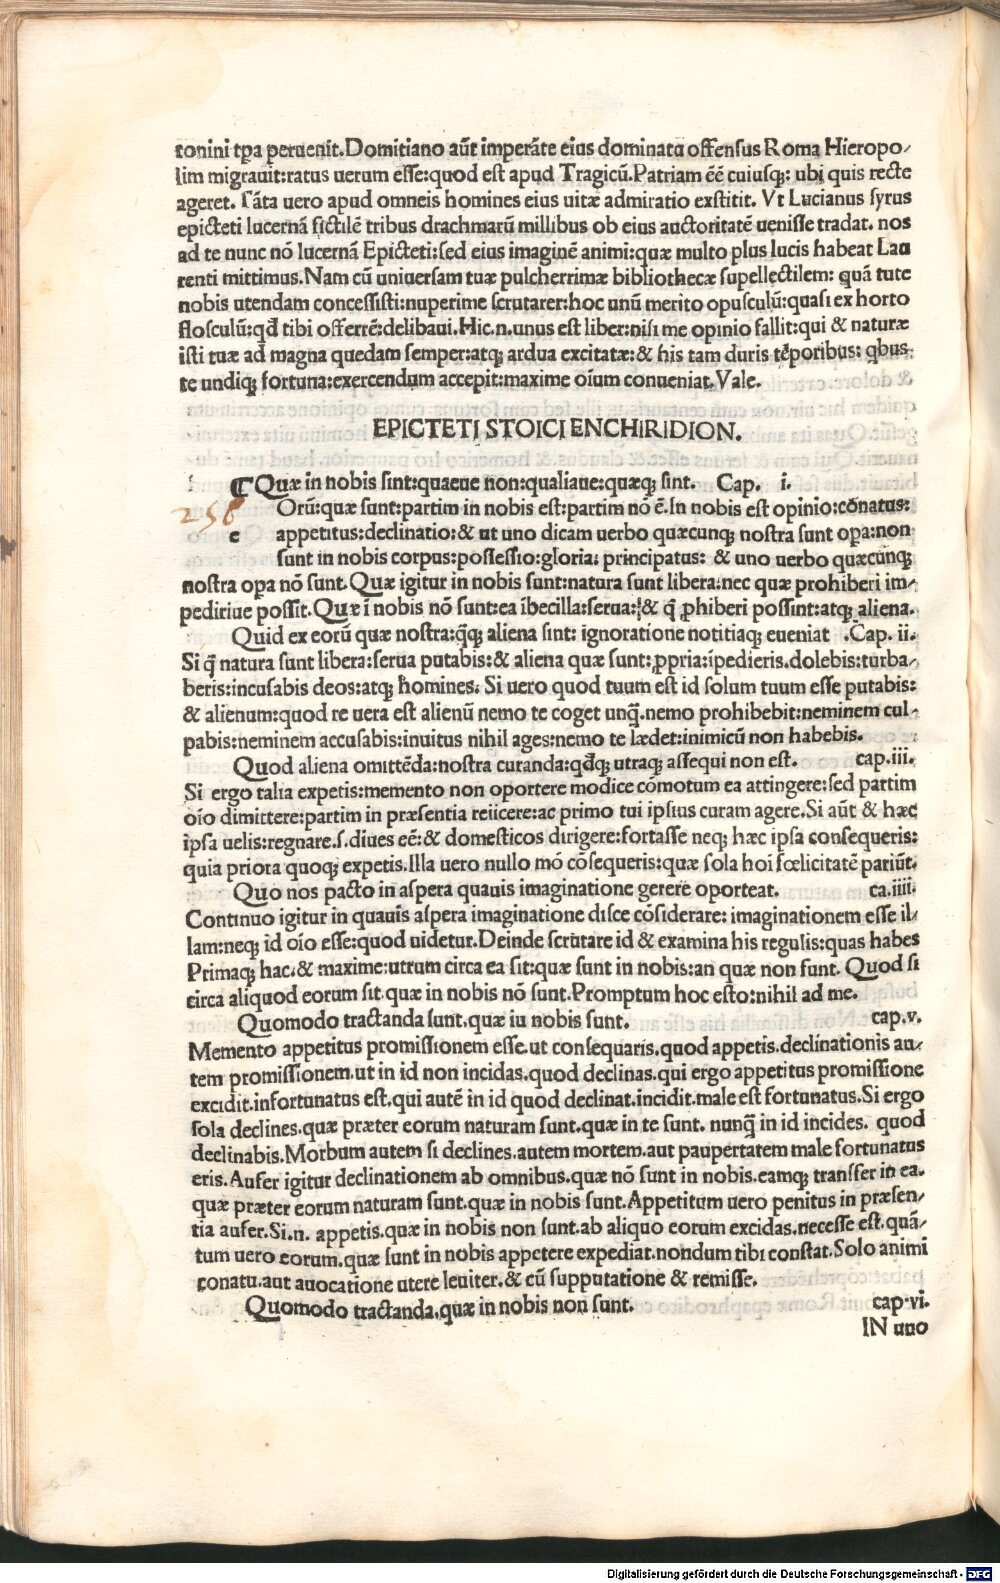 tonini tpa peruenit.Domitiano aũt imperãte eius dominatu offensus Roma Hieropo/
lim migrauit:ratus uerum esse:quod est apud Tragicũ.Patriam ẽẽ cuiusq;: ubi quis recte
ageret. Tãta uero apud omneis homines eius uitæ admiratio exstitit. Vt Lucianus syrus
epicteti lucernã fictilẽ tribus drachmarũ millibus ob eius auctoritatẽ uenisse tradat. nos
ad te nunc nõ lucernã Epicteti:sed eius imaginẽ animi:quæ multo plus lucis habeat Lau
renti mittimus.Nam cũ uniuersam tuæ pulcherrimæ bibliothecæ supellectilem: quã tute
nobis utendam concessisti:nuperime scrutarer:hoc unũ merito opusculũ:quasi ex horto
flosculũ:qđ tibi offerrẽ:delibaui.Hic.n.unus est liber:nisi me opinio fallit:qui & naturæ
isti tuæ ad magna quedam semper:atq; ardua excitatæ:& his tam duris tẽporibus: qbus
te undiq; fortuna:exercendum accepit:maxime oĩum conueniat.Vale.
EPICTETI STOICI ENCHIRIDION.
¶ Quæ in nobis sint:quæue non:qualiaue:quæq; sint. Cap. i.
258
Orũ:quæ sunt:partim in nobis est:partim nõ ẽ.In nobis est opinio:cõnatus:
e appetitus:declinatio:& ut uno dicam uerbo quæcunq; nostra sunt opa:non
sunt in nobis corpus:possessio:gloria: principatus: & uno uerbo quæcũq;
nostra opa nõ sunt.Quæ igitur in nobis sunt:natura sunt libera:nec quæ prohiberi im/
pediriue possit.Quæ ĩ nobis nõ sunt:ea ĩbecilla:serua:& q̃ ꝓhiberi possint:atq; aliena.
Quid ex eorũ quæ nostra:q̃q; aliena sint: ignoratione notitiaq; eueniat .Cap. ii.
Si q̃ natura sunt libera:serua putabis:& aliena quæ sunt:ꝓpria:ĩpedieris.dolebis:turba/
beris:incusabis deos:atq; homines. Si uero quod tuum est id solum tuum esse putabis:
& alienum:quod re uera est alienũ nemo te coget unq̃.nemo prohibebit:neminem cul-
pabis:neminem accusabis:inuitus nihil ages:nemo te lædet:inimicũ non habebis.
Quod aliena omittẽda:nostra curanda:qđq; utraq; assequi non est. cap.iii.
Si ergo talia expetis:memento non oportere modice cõmotum ea attingere:sed partim
oĩo dimittere:partim in præsentia reiicere:ac primo tui ipsius curam agere.Si aũt & hæc
ipsa uelis:regnare.s.diues eẽ:& domesticos dirigere:fortasse neq; hæc ipsa consequeris:
quia priora quoq; expetis.Illa uero nullo mõ cõsequeris:quæ sola hoi fœlicitatẽ pariũt.
Quo nos pacto in aspera quauis imaginatione gerere oporteat. ca.iiii.
Continuo igitur in quauis aspera imaginatione disce cõsiderare: imaginationem esse il/
lam:neq; id oĩo esse:quod uidetur.Deinde scrutare id & examina his regulis:quas habes
Primaq; hac.& maxime:utrum circa ea sit:quæ sunt in nobis:an quæ non sunt. Quod si
circa aliquod eorum sit.quæ in nobis nõ sunt.Promptum hoc esto:nihil ad me.
Quomodo tractanda sunt.quæ iu nobis sunt. cap.v.
Memento appetitus promissionem esse.ut consequaris.quod appetis.declinationis au/
tem promissionem.ut in id non incidas.quod declinas.qui ergo appetitus promissione
excidit.infortunatus est.qui autẽ in id quod declinat.incidit.male est fortunatus.Si ergo
sola declines.quæ præter eorum naturam sunt.quæ in te sunt. nunq̃ in id incides. quod
declinabis.Morbum autem si declines.autem mortem.aut paupertatem male fortunatus
eris.Aufer igitur declinationem ab omnibus.quæ nõ sunt in nobis.eamq; transfer in ea.
quæ præter eorum naturam sunt.quæ in nobis sunt.Appetitum uero penitus in præsen/
tia aufer.Si.n. appetis.quæ in nobis non sunt.ab aliquo eorum excidas.necesse est.quã/
tum uero eorum.quæ sunt in nobis appetere expediat.nondum tibi constat.Solo animi
conatu.aut auocatione utere leuiter.& cũ supputatione & remisse.
Quomodo tractanda.quæ in nobis non sunt. cap.vi.
IN uno
Digitalisierung gefördert durch die Deutsche Forschungsgemeinschaft - DFG